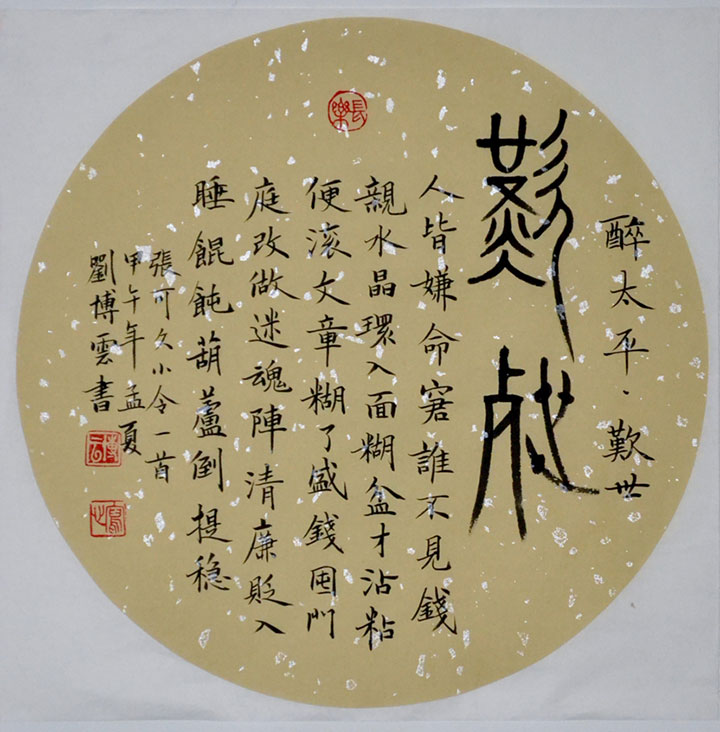 醉太平·歎世
歎世
長樂
人皆嫌命窘誰不見錢
親水晶環入面糊盆才沾粘
便滚文章糊了盛錢囤門
庭改做迷魂陣清廉貶入
睡餛飩葫蘆倒提稳
張可久小令一首
甲午年孟夏
劉博雲書